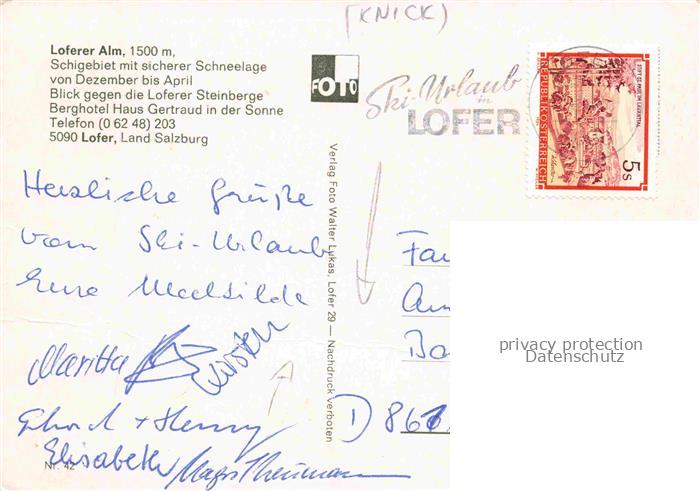 (KNICK)
Loferer Alm, 1500 m,
Schigebiet mit sicherer Schneelage
von Dezember bis April
Blick gegen die Loferer Steinberge
Berghotel Haus Gertraud in der Sonne
Telefon (0 62 48) 203
5090 Lofer, Land Salzburg
FOTO
Ski-Urlaub
in
LOFER
REPUBLIK ÖSTERREICH
5s
Verlag Foto Walter Lukas, Lofer 29 — Nachdruck verboten
Herzliche Grüße
vom Ski-Urlaub
Eure Mechtilde
Maritta
Kirsten
+ Henny
Elisabeth
Nr. 42
D 861
privacy protection
Datenschutz